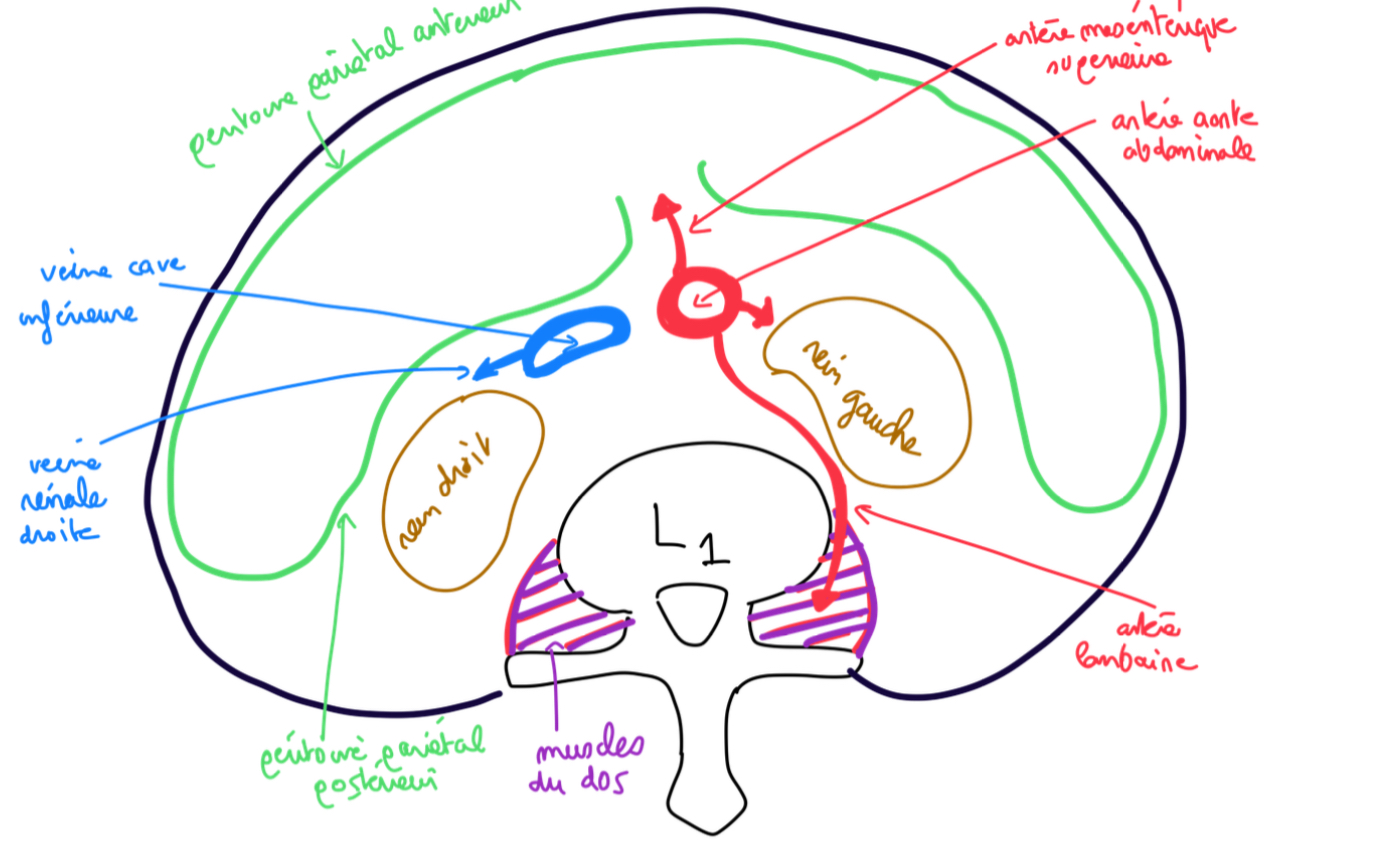 péritoine pariétal antérieur
artère mésentérique
supérieure
artère aorte
abdominale
veine cave
inférieure
rein gauche
rein droit
veine
rénale
droite
L1
artère
lombaire
péritoine pariétal
postérieur
muscles
du dos